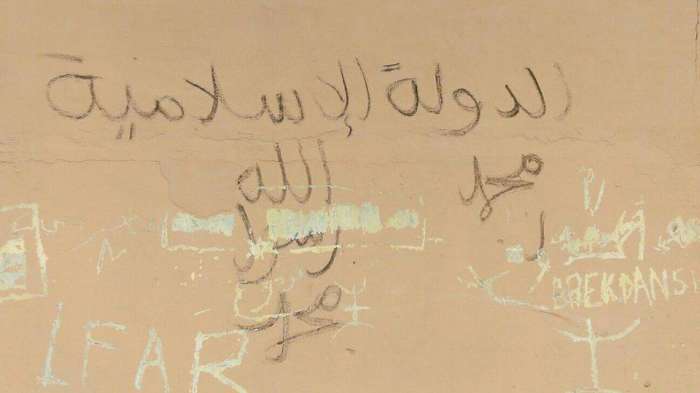 الدولة الإسلامية
الله
محمد
رسول
BREKDANS
محمد
LFAR